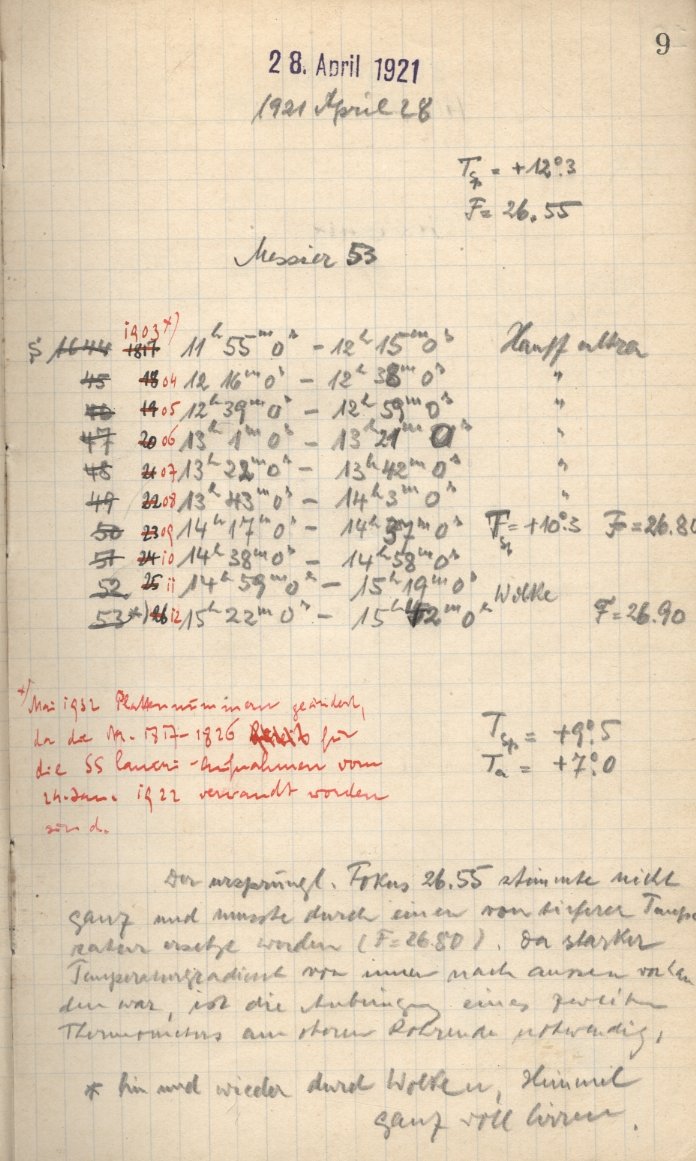 9
28. April 1921
1921 April 28
T Sp = +12°.3
F = 26.55
Messier 53
1903*)
S 1644 1817 11h 55m 0s - 12h 15m 0s Hauff ultra
45 18 04 12 16m 0s - 12h 38m 0s "
46 19 05 12h 39m 0s - 12h 59m 0s "
47 20 06 13h 1m 0s - 13h 21m 0s "
48 21 07 13h 22m 0s - 13h 42m 0s "
49 22 08 13h 43m 0s - 14h 3m 0s "
50 23 09 14h 17m 0s - 14h 37m 0s T Sp = +10°.3 F = 26.80
51 24 10 14h 38m 0s - 14h 58m 0s
52 25 11 14h 59m 0s - 15h 19m 0s Wolke
53*) 26 12 15h 22m 0s - 15h 42m 0s F = 26.90
*) Mai 1932 Plattennummern geändert,
da die Nr. 1817-1826 für
die SS Aufnahmen vom
24. Jan. 1922 verwandt worden
sind.
T Sp = +9°.5
T a = +7°.0
Der ursprüngl. Fokus 26.55 stimmte nicht
ganz und musste durch einen von tieferer Tempe
ratur ersetzt werden (F = 26.80). Da starker
Temperaturgradient von innen nach aussen vorhan
den war, ist die Anbringung eines zweiten
Thermometers am oberen Rohrende notwendig.
* hin und wieder durch Wolken, Himmel
ganz voll Cirren.